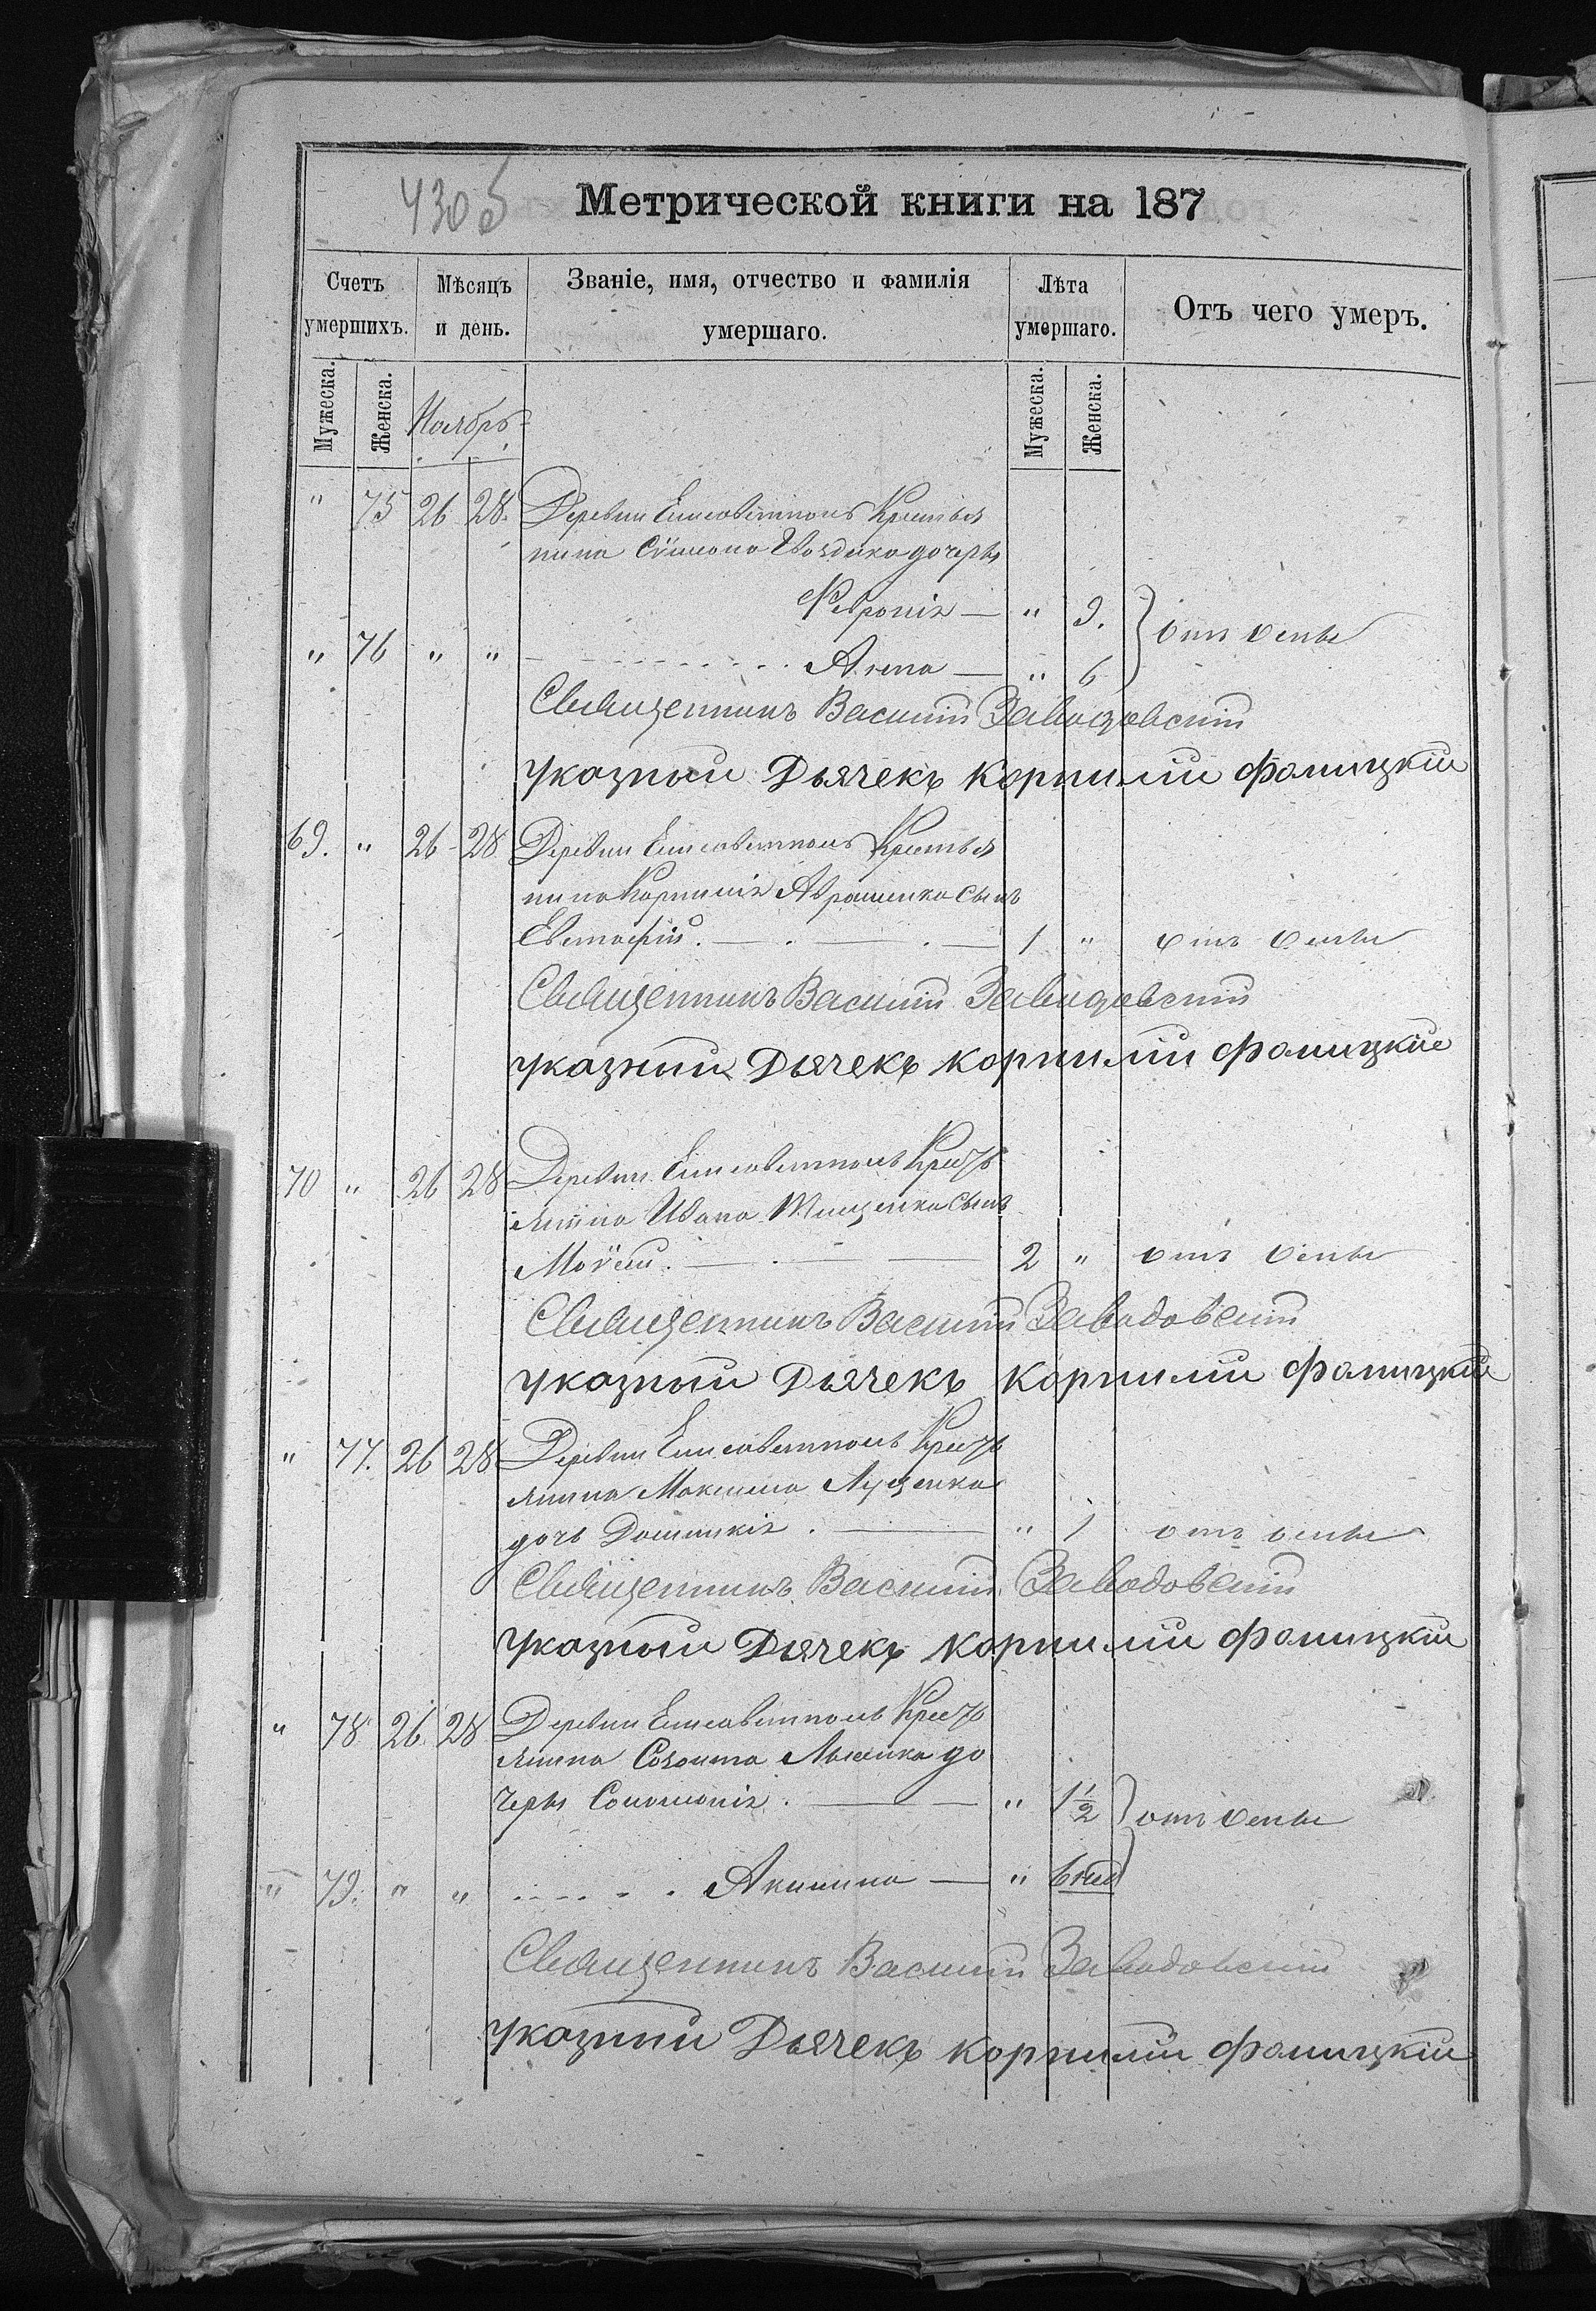 430б
Метрической книги на 187
Счетъ умершихъ. Мѣсяцъ и день. Званіе, имя, отчество и фамилія умершаго. Лѣта умершаго. Отъ чего умеръ.
Мужеска. Женска. Ноябрь Мужеска. Женска.
" 75 26 28. Деревни Елисаветполь Крестья
нина Сѵмеона Гвоздика дочерь
Феврония — " 9. отъ оспы
" 76 " " Анна — " 6
Священникъ Василій Заводовскій
указный Дьячекъ Корнилій Фолицкій
69. " 26 28 Деревни Елисаветполь Крестья
нина Корнилія Аврашенка Сынъ
Евстафій. — 1 " отъ оспы
Священникъ Василій Заводовскій
указный Дьячекъ Корнилій Фолицкій
70 " 26 28 Деревни Елисаветполь Кресть
янина Ивана Тищенка Сынъ
Моѵсей. — 2 " отъ оспы
Священникъ Василій Заводовскій
указный Дьячекъ Корнилій Фолицкій
" 77. 26 28 Деревни Елисаветполь Кресть
янина Максима Луценка
дочь Домникія. — " 1 отъ оспы
Священникъ Василій Заводовскій
указный Дьячекъ Корнилій Фолицкій
" 78 26 28 Деревни Елисаветполь Кресть
янина Созонта до
черь Соломонія. — " 1 1/2 отъ оспы
" 79. " " Акилина — " 6
Священникъ Василій Заводовскій
указный Дьячекъ Корнилій Фолицкій